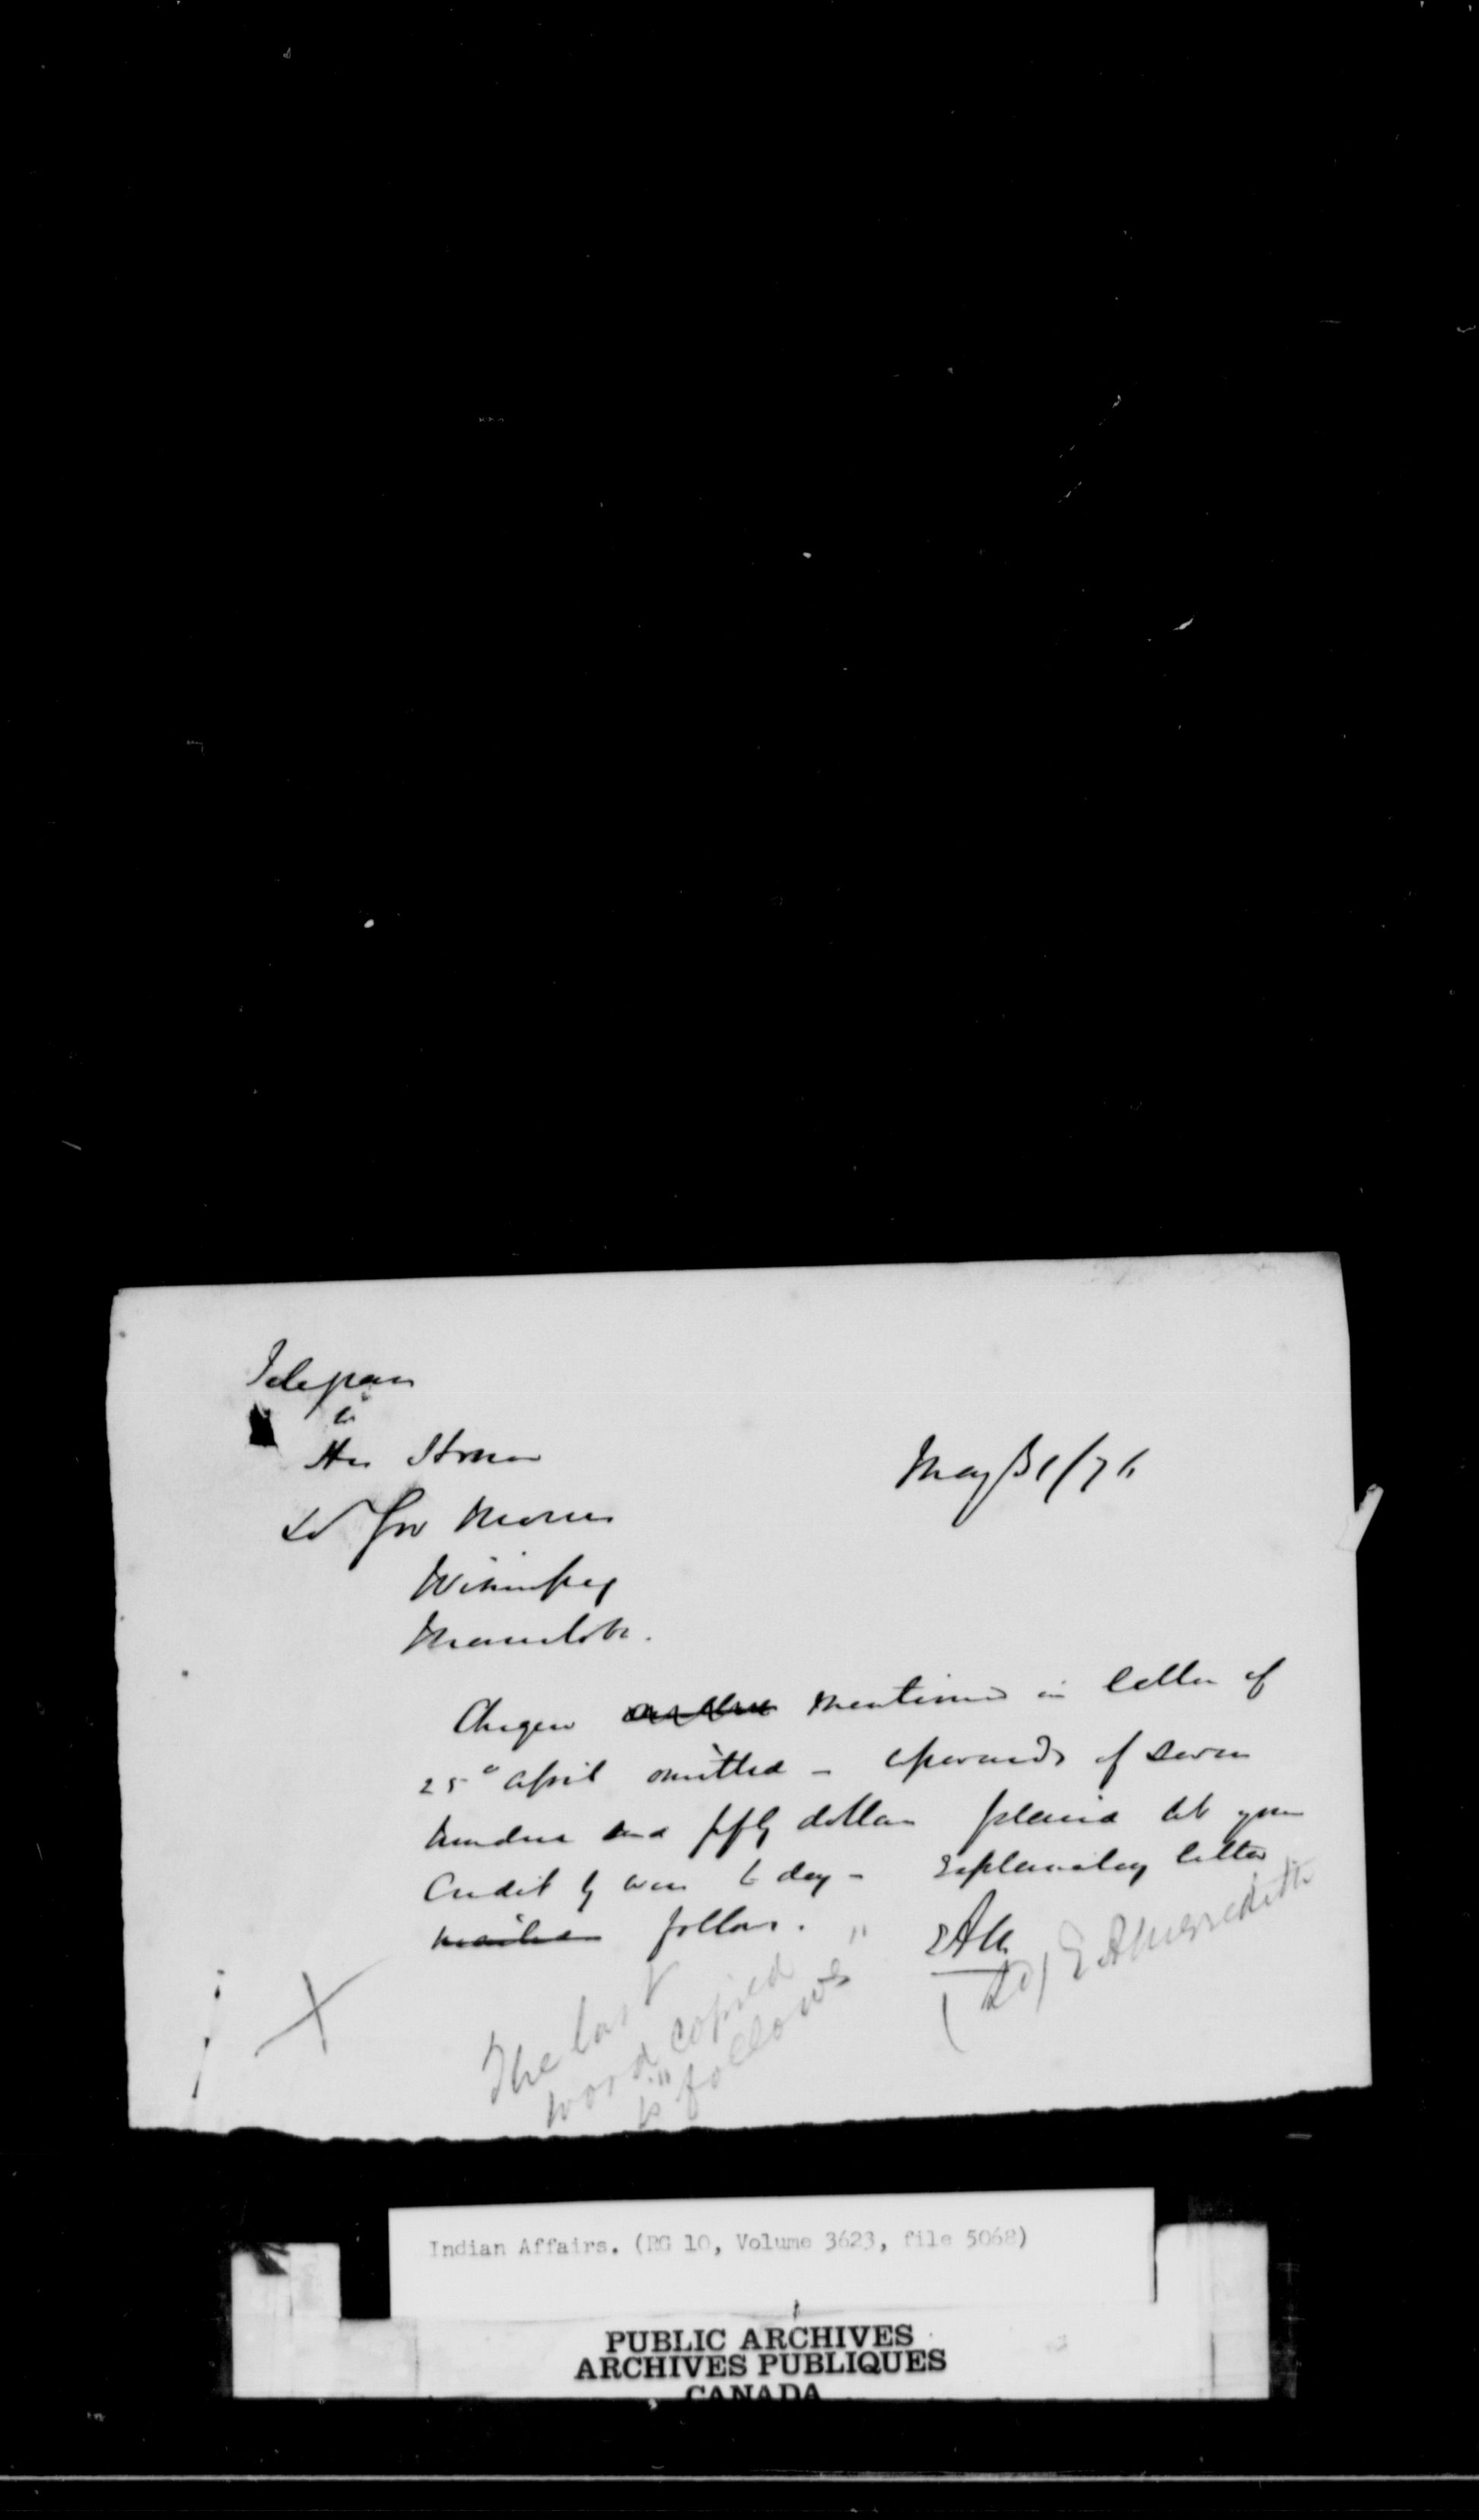 Telegram
to
His Honor
May 31/76
Lt Gov Morris
Winnipeg
Manitoba.
Charges mentioned in letter of
25th April omitted - upwards of seven
hundred and fifty dollars placed to your
Credit by wire to day - Explanatory letter
mailed follows.
EAM
(Sd) E A Meredith
The last
word copied
is "follows"
Indian Affairs. (RG 10, Volume 3623, file 5068)
PUBLIC ARCHIVES
ARCHIVES PUBLIQUES
CANADA